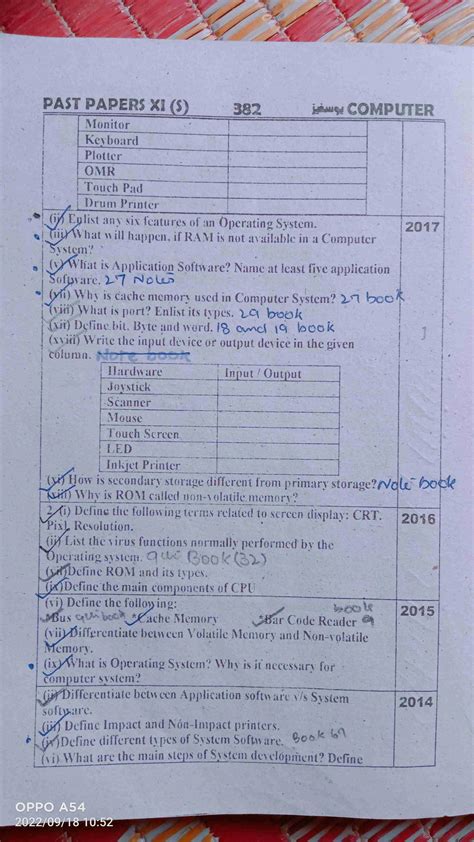 PAST PAPERS XI (S) 382 یوسفیز COMPUTER
Monitor
Keyboard
Plotter
OMR
Touch Pad
Drum Printer
(ii) Enlist any six features of an Operating System. 2017
(iii) What will happen, if RAM is not available in a Computer
System?
(v) What is Application Software? Name at least five application
Software. 27 Notes
(vii) Why is cache memory used in Computer System? 27 book
(viii) What is port? Enlist its types. 29 book
(xii) Define bit. Byte and word. 18 and 19 book
(xviii) Write the input device or output device in the given
column. Note book
Hardware Input / Output
Joystick
Scanner
Mouse
Touch Screen
LED
Inkjet Printer
(xi) How is secondary storage different from primary storage? Note book
(xiii) Why is ROM called non-volatile memory?
2. (i) Define the following terms related to screen display: CRT. 2016
Pixl, Resolution.
(ii) List the virus functions normally performed by the
Operating system. Book (32)
(vii) Define ROM and its types.
(ix) Define the main components of CPU
(vi) Define the following: 2015
book
Bus Cache Memory Bar Code Reader 9
(vii) Differentiate between Volatile Memory and Non-volatile
Memory.
(ix) What is Operating System? Why is it necessary for
computer system?
(ii) Differentiate between Application software v/s System 2014
software.
(iii) Define Impact and Non-Impact printers.
(iv) Define different types of System Software. Book 69
(vi) What are the main steps of System development? Define
OPPO A54
2022/09/18 10:52